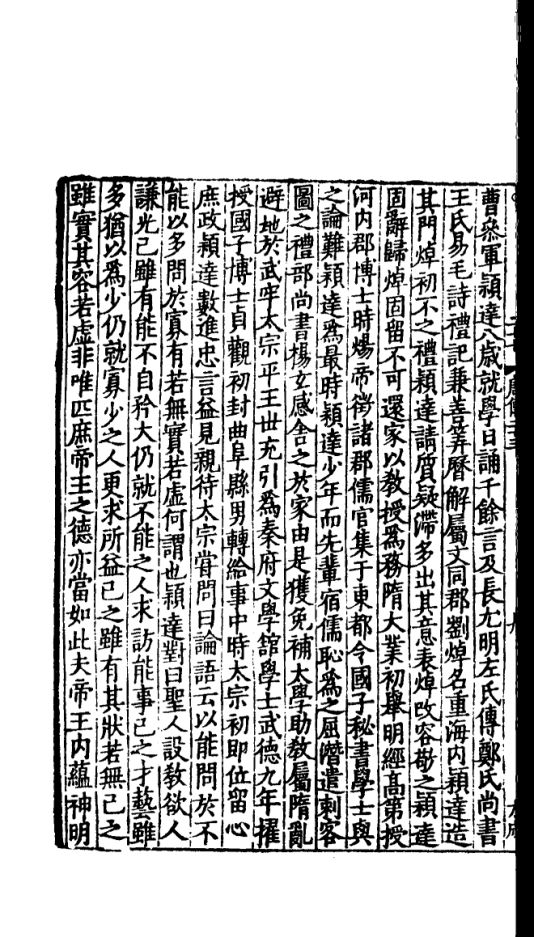 曹參軍頴達八歲就學日誦千餘言及長尤明左氏傳鄭氏尚書
王氏易毛詩禮記兼善筭曆解屬文同郡劉焯名重海內頴達造
其門焯初不之禮頴達請質疑滯多出其意表焯改容敬之頴達
固辭歸焯固留不可還家以教授爲務隋大業初舉明經高第授
河內郡博士時煬帝徵諸郡儒官集于東都令國子秘書學士與
之論難頴達爲最時頴達少年而先輩宿儒恥爲之屈潛遣刺客
圖之禮部尚書楊玄感舍之於家由是獲免補太學助教屬隋亂
避地於武牢太宗平王世充引爲秦府文學館學士武德九年擢
授國子博士貞觀初封曲阜縣男轉給事中時太宗初即位留心
庶政頴達數進忠言益見親待太宗甞問曰論語云以能問於不
能以多問於寡有若無實若虛何謂也頴達對曰聖人設教欲人
謙光己雖有能不自矜大仍就不能之人求訪能事己之才藝雖
多猶以爲少仍就寡少之人更求所益己之雖有其狀若無己之
雖實其容若虛非唯匹庶帝王之德亦當如此夫帝王內蘊神明